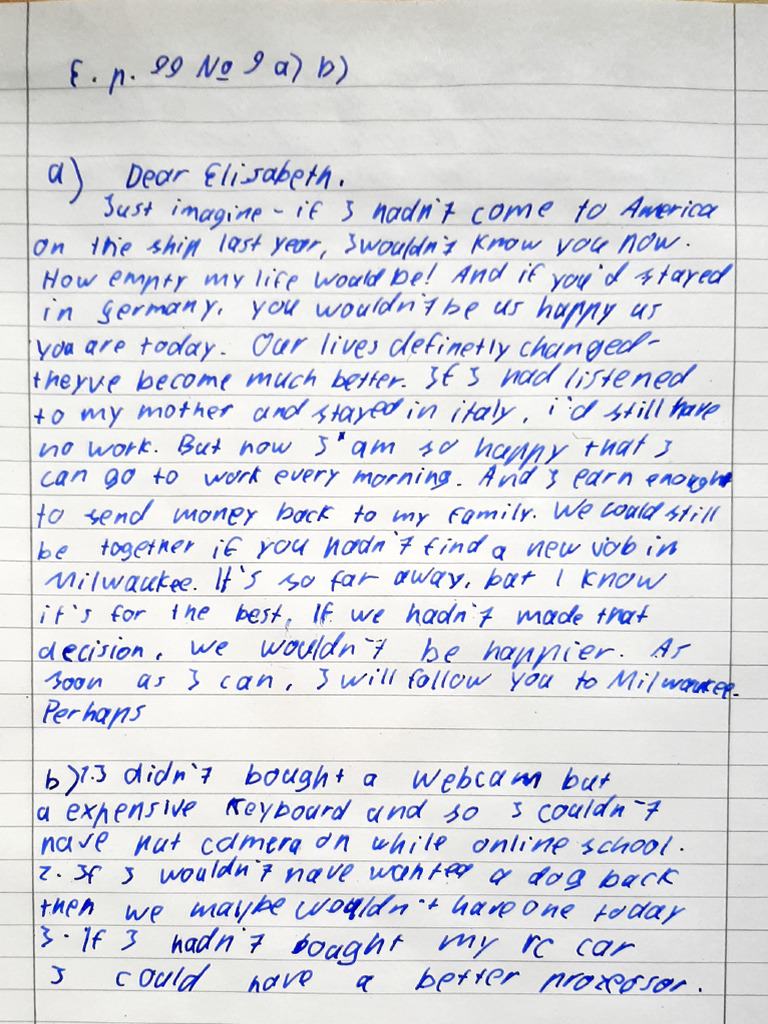 E. p. 99 No 9 a) b)
a) Dear Elisabeth.
Just imagine - if I hadn't come to America
on the ship last year, I wouldn't know you now.
How empty my life would be! And if you'd stayed
in germany, you wouldn't be us happy us
you are today. Our lives definetly changed-
theyve become much better. If I had listened
to my mother and stayed in italy, i'd still have
no work. But now I am so happy that I
can go to work every morning. And I earn enought
to send money back to my family. We could still
be together if you hadn't find a new job in
Milwaukee. It's so far away, but I know
it's for the best, If we hadn't made that
decision, we wouldn't be happier. As
soon as I can, I will follow you to Milwaukee.
Perhaps
b) 1. I didn't bought a webcam but
a expensive Keyboard and so I couldn't
have camera on while online school.
2. If I wouldn't have wanted a dog back
then we maybe wouldn't have one today
3. If I hadn't bought my rc car
I could have a better prozessor.